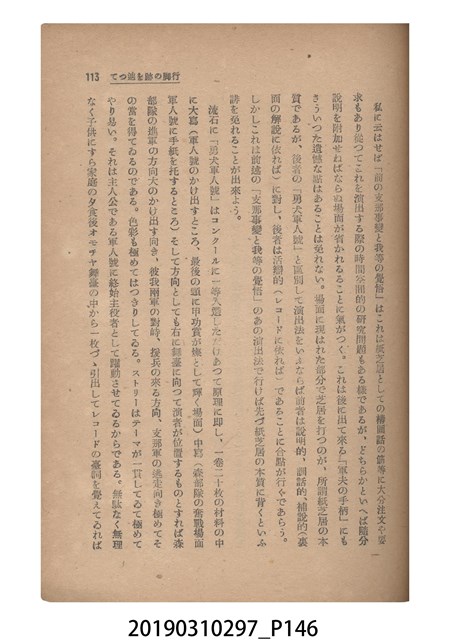 行脚の跡を追つて 113
私に云はせば「前の支那事變と我等の覺悟」はこれは紙芝居としての構圖話の筋等に大分注文や要
求もあり從つてこれを演出する際の時間空間的の研究問題もある樣であるが、どちらかといへば隨分
說明を附加せねばならぬ場面が省かれることに氣がつく。これは後に出て來る『軍夫の手柄』にも
きういつた遺憾な點はあることは免れない。場面に現はれた部分で芝居を打つのが、所謂紙芝居の本
質であるが、後者の『勇犬軍人號』と區別して演出法をいふならば前者は說明的、訓話的、補說的(裏
面の解說に依れば)に對し、後者は活題的(レコードに依れば)であることに合點が行くであらう。
しかしこれは前述の『支那事變と我等の覺悟』のあの演出法で行けば先づ紙芝居の本質に背くといふ
誹を免れることが出來よう。
流石に『勇犬軍人號』はコンクールに一等入選しただけあつて原理に即し、一卷二十枚の材料の中
に大寫(軍人號のかけ出すところ、最後の頭に甲功賞が燦として輝く場面)中寫(森部隊の奮戰場面
軍人號に手紙を托するところ)そして方向としても右に舞臺に向つて演者が位置するものとすれば森
部隊の進軍の方向犬のかけ出す向き、彼我兩軍の對峙、援兵の來る方向、支那軍の逃走向き極めてそ
の當を得てゐるのである。色彩も極めてはつきりしてゐる。ストリーはテーマが一貫してゐて極めて
やり易い。それは主人公である軍人號に終始主役者として躍動させてゐるからである。無駄なく無理
なく子供にすら家庭の夕食後オモチヤ舞臺の中から一枚づゝ引出してレコードの臺詞を覺えてゐれば
20190310297_P146